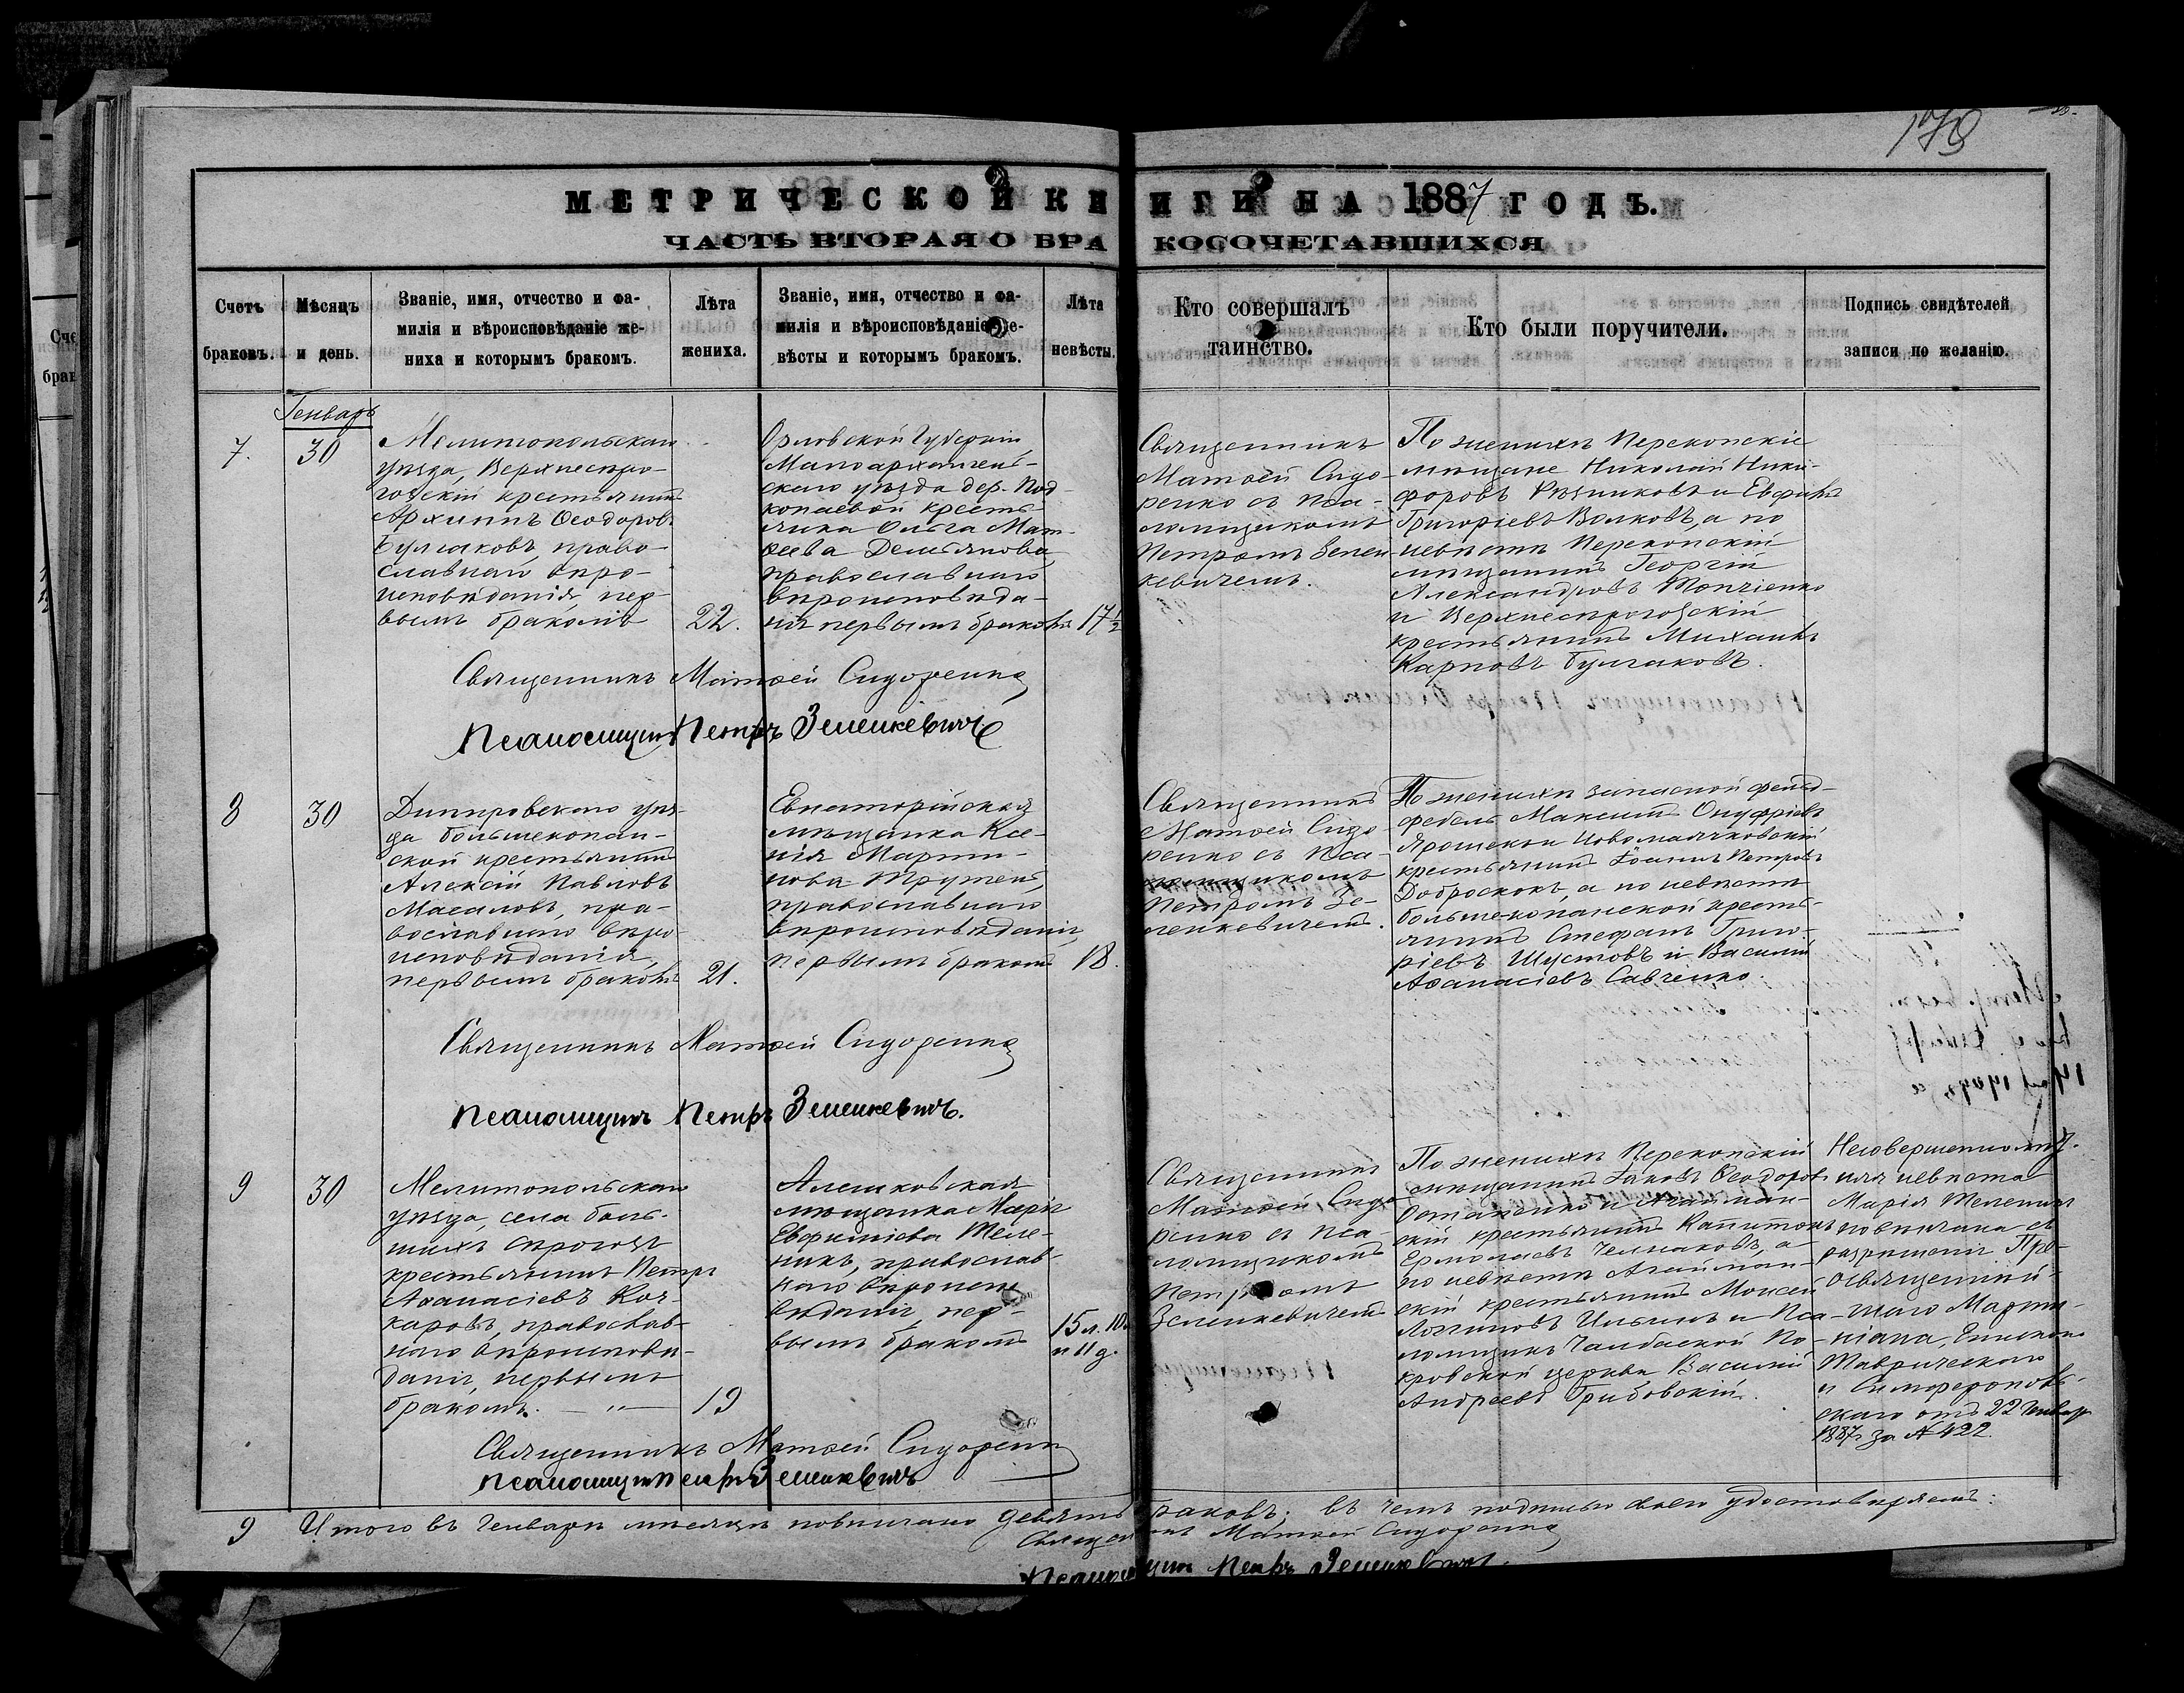 178
МЕТРИЧЕСКОЙ КНИГИ НА 1887 ГОДЪ.
ЧАСТЬ ВТОРАЯ О БРАКОСОЧЕТАВШИХСЯ
Счетъ
браковъ.
Мѣсяцъ
и день.
Званіе, имя, отчество и фа-
милія и вѣроисповѣданіе же-
ниха и которымъ бракомъ.
Лѣта
жениха.
Званіе, имя, отчество и фа-
милія и вѣроисповѣданіе не-
вѣсты и которымъ бракомъ.
Лѣта
невѣсты.
Кто совершалъ
таинство.
Кто были поручители.
Подпись свидѣтелей
записи по желанію.
Генварь
7.
30
Мелитопольскаго
уѣзда, Верхнесѣро-
гозскій крестьянинъ
Архиппъ Ѳеодоровъ
Булгаковъ, право-
славнаго вѣро-
исповѣданія, пер-
вымъ бракомъ
22.
Орловской Губерніи
Малоархангель-
скаго уѣзда дер. Под-
копаевой кресть-
янка Ольга Мат-
ѳеева Демьянова,
православнаго
вѣроисповѣда-
нія первымъ бракомъ
17 1/2
Священникъ
Матѳей Сидо-
ренко съ Пса-
ломщикомъ
Петромъ Зелен-
кевичемъ.
По женихѣ Перекопскіе
мѣщане Николай Ники-
форовъ Рѣзниковъ и Евфимъ
Григоріевъ Волковъ, а по
невѣстѣ Перекопскій
мѣщанинъ Георгій
Александровъ Топчіенко
и Верхнесѣрогозскій
крестьянинъ Михаилъ
Карповъ Булгаковъ.
Священникъ Матѳей Сидоренко
Псаломщикъ Петръ Зеленкевичъ
8
30
Днѣпровскаго уѣз-
да больше копан-
ской крестьянинъ
Алексій Павловъ
Масаловъ, пра-
вославнаго вѣро-
исповѣданія,
первымъ бракомъ
21.
Евпаторійская
мѣщанка Ксе-
нія Марти-
нова Трутень,
православнаго
вѣроисповѣданія,
первымъ бракомъ
18.
Священникъ
Матѳей Сидо-
ренко съ Пса-
ломщикомъ
Петромъ Зе-
ленкевичемъ.
По женихѣ запасной фельд-
фебель Максимъ Онуфріевъ
Ярошенко и Новомаячковскій
крестьянинъ Іоаннъ Петровъ
Доброскокъ, а по невѣстѣ
больше-копанской кресть-
янинъ Стефанъ Григо-
ріевъ Шустовъ и Василій
Аѳанасіевъ Савченко.
Священникъ Матѳей Сидоренко
Псаломщикъ Петръ Зеленкевичъ.
9
30
Мелитопольскаго
уѣзда, села боль-
шихъ Сѣрогозъ
крестьянинъ Петръ
Аѳанасіевъ Коч-
каровъ, православ-
наго вѣроисповѣ-
данія, первымъ
бракомъ. — " —
19
Алешковская
мѣщанка Марія
Евфиміева Теле-
никъ, православ-
наго вѣроиспо-
вѣданія, пер-
вымъ бракомъ
15 л. 10 м.
и 11 д.
Священникъ
Матѳей Сидо-
ренко съ Пса-
ломщикомъ
Петромъ
Зеленкевичемъ
По женихѣ Перекопскій
мѣщанинъ Іаковъ Ѳеодоровъ
Остапенко и Агайман-
скій крестьянинъ Капитонъ
Ермолаевъ Челпаковъ, а
по невѣстѣ Агайман-
скій крестьянинъ Моисей
Логгиновъ Ильинъ и Пса-
ломщикъ Чалбаской По-
кровской церкви Василій
Андреевъ Грибовскій.
Несовершеннолѣт-
няя невѣста
Марія Теленикъ
повѣнчана съ
разрѣшенія Прео-
священнѣй-
шаго Марти-
ніана, Епископа
Таврическаго
и Симферополь-
скаго отъ 22 Генваря
1887 г. за № 422.
Священникъ Матѳей Сидоренко
Псаломщикъ Петръ Зеленкевичъ
9 Итого въ Генварѣ мѣсяцѣ повѣнчано девять браковъ; въ чемъ подписью своею удостовѣряемъ:
Священникъ Матѳей Сидоренко
Псаломщикъ Петръ Зеленкевичъ.